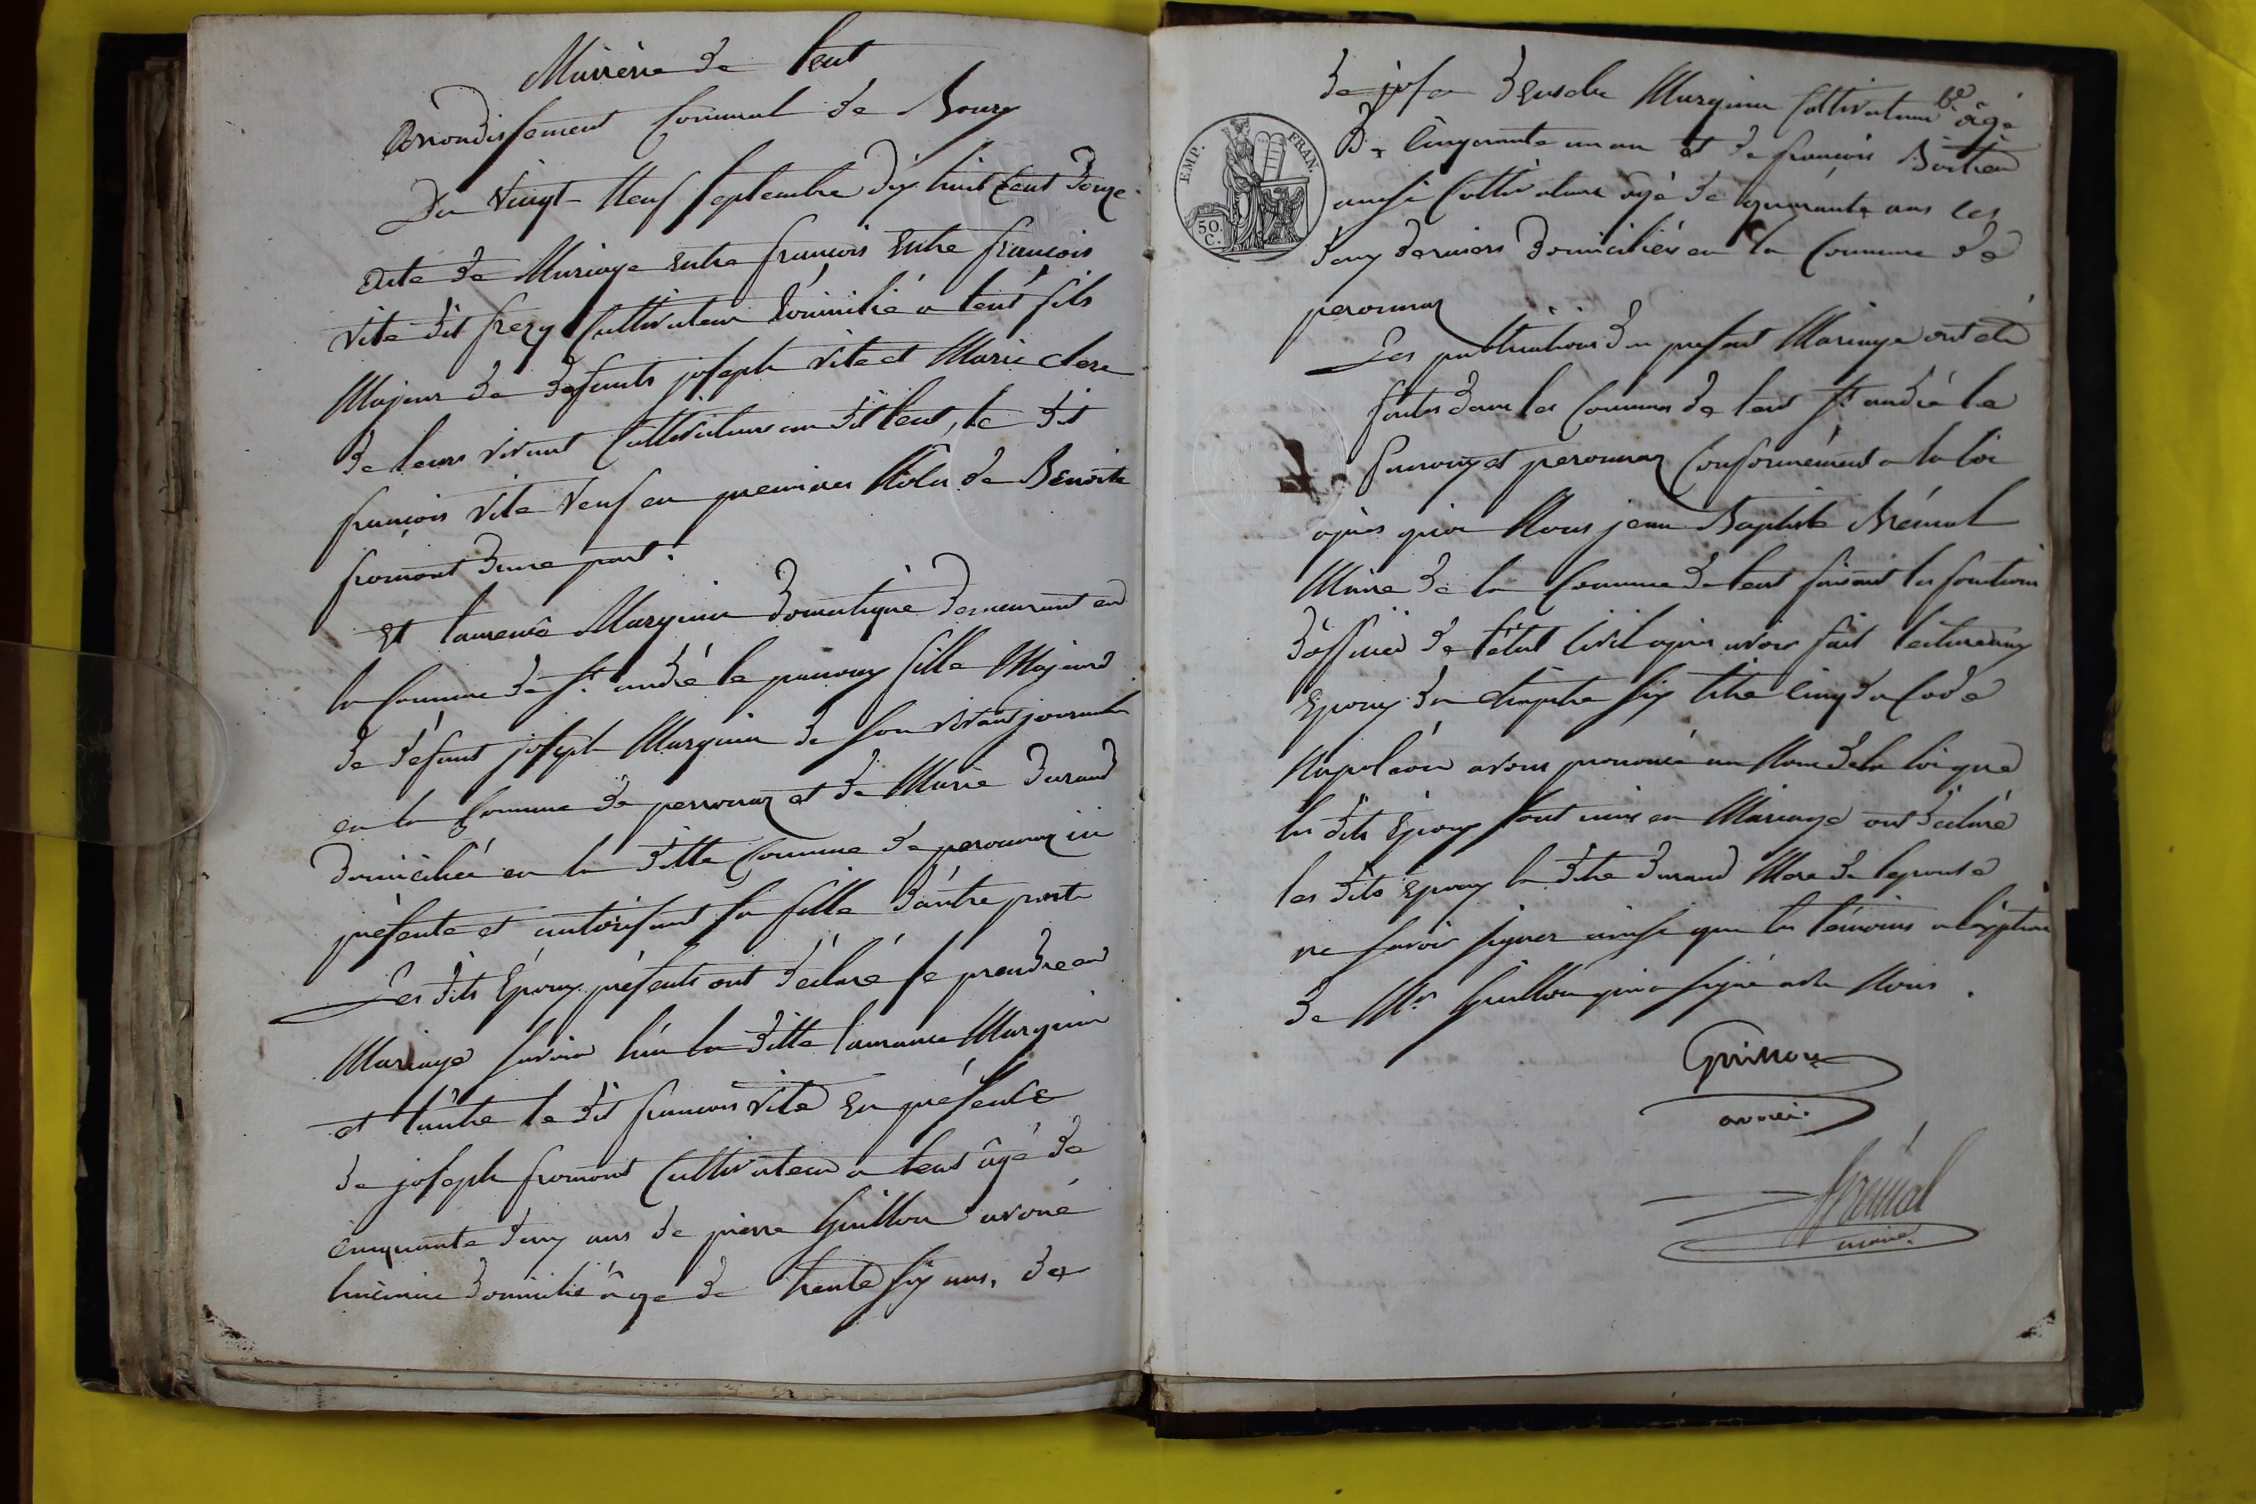 Mairerie de lent
Arrondissement Communal de Bourg
Du Vingt-Neuf Septembre dix huit Cent douze.
Acte de Mariage entre françois entre françois
vite dit frery Cultivateur domicilié a lent fils
Majeur de defunts joseph vite et Marie clere
de leurs vivant Cultivateurs au dit lent, le dit
françois vite veuf en premiere Nôces de Benoite
fromont d'une part.
et laurence Marguin domestique demeurant en
la Commune de St. andré le panoux fille Majeure
de défunt joseph Marguin de son vivant journalier
en la Commune de perronas et de Marie Durand
domiciliée en la ditte Commune de peronnas ici
présente et autorisant sa fille d'autre part
Les dits Epoux présents ont déclaré se prendre en
Mariage savoir l'un la ditte laurance Marguin
et l'autre le dit françois vite En présence
de joseph fromont Cultivateur a lent âgé de
cinquante deux ans de pierre Guillon avoué
domicilié âgé de trente six ans, de
de Marguin Cultivateur âgé
De Cinquante un an et de françois
aussi Cultivateur âgé de quarante ans les
deux derniers domiciliés en la Commune de
peronnas
Les publications du present Mariage ont été
faites dans les Communes de lent St. andré le
panoux et peronnas Conformément a la loi
après quoi Nous jean Baptiste Brénal
Maire de la Commune de lent faisant les fonctions
d'officier de l'état Civil après avoir fait lecture aux
Epoux du chapitre six titre Cinq du Code
Napoléon avons prononcé au Nom de la loi que
les dits Epoux sont unis en Mariage ont déclaré
les dits Epoux la dite Durand Mere de l'epouse
ne savoir signer ainsi que les témoins a l'exption
de Mr Guillon qui a signé avec Nous.
Guillon
avoué.
Brénal
maire.
EMP. FRAN.
50 C.